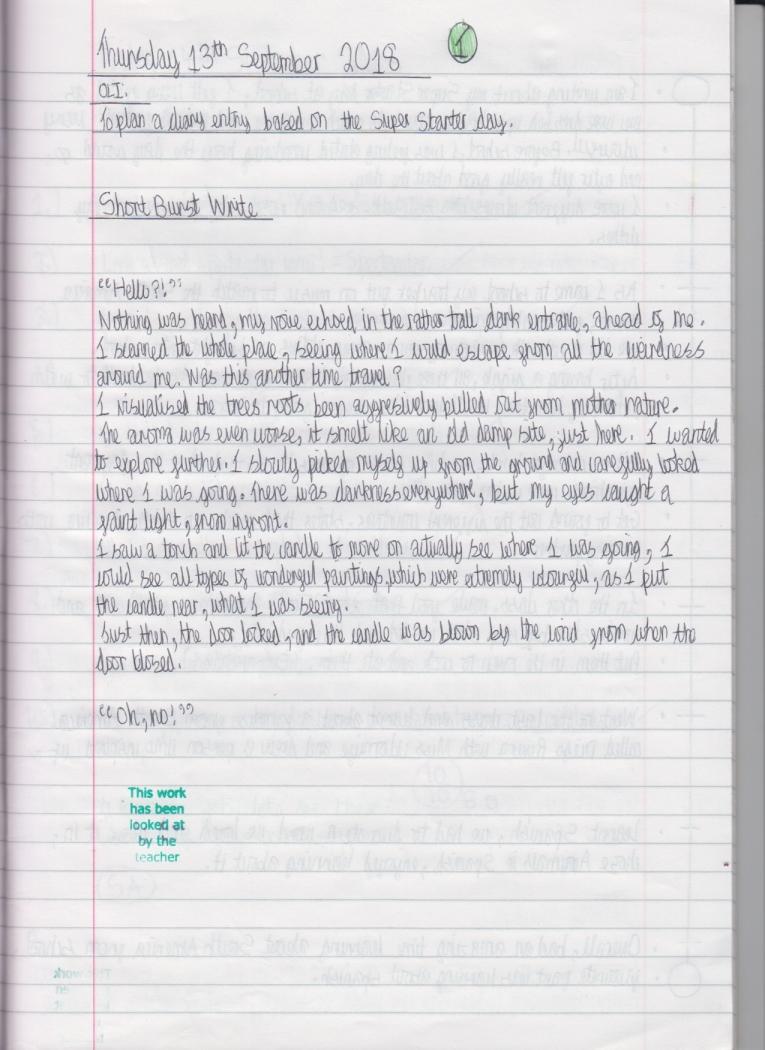 Thursday 13th September 2018
1
OLI:
To plan a diary entry based on the Super Starter day.
Short Burst Write
"Hello?!"
Nothing was heard, my voice echoed in the rather tall dark entrane, ahead of me.
I scanned the whole place, seeing where I would escape from all the weirdness
around me. Was this another time travel?
I visualised the trees roots been aggressively pulled out from mother nature.
The aroma was even worse, it smelt like an old damp site, just here. I wanted
to explore further. I slowly picked myself up from the ground and carefully looked
where I was going. There was darkness everywhere, but my eyes caught a
faint light, from infront.
I saw a torch and lit the candle to move on actually see where I was going, I
could see all types of wonderful paintings, which were extremely colourful, as I put
the candle near, what I was seeing.
Just then, the door locked, and the candle was blown by the wind from when the
door closed.
"Oh, no!"
This work
has been
looked at
by the
teacher